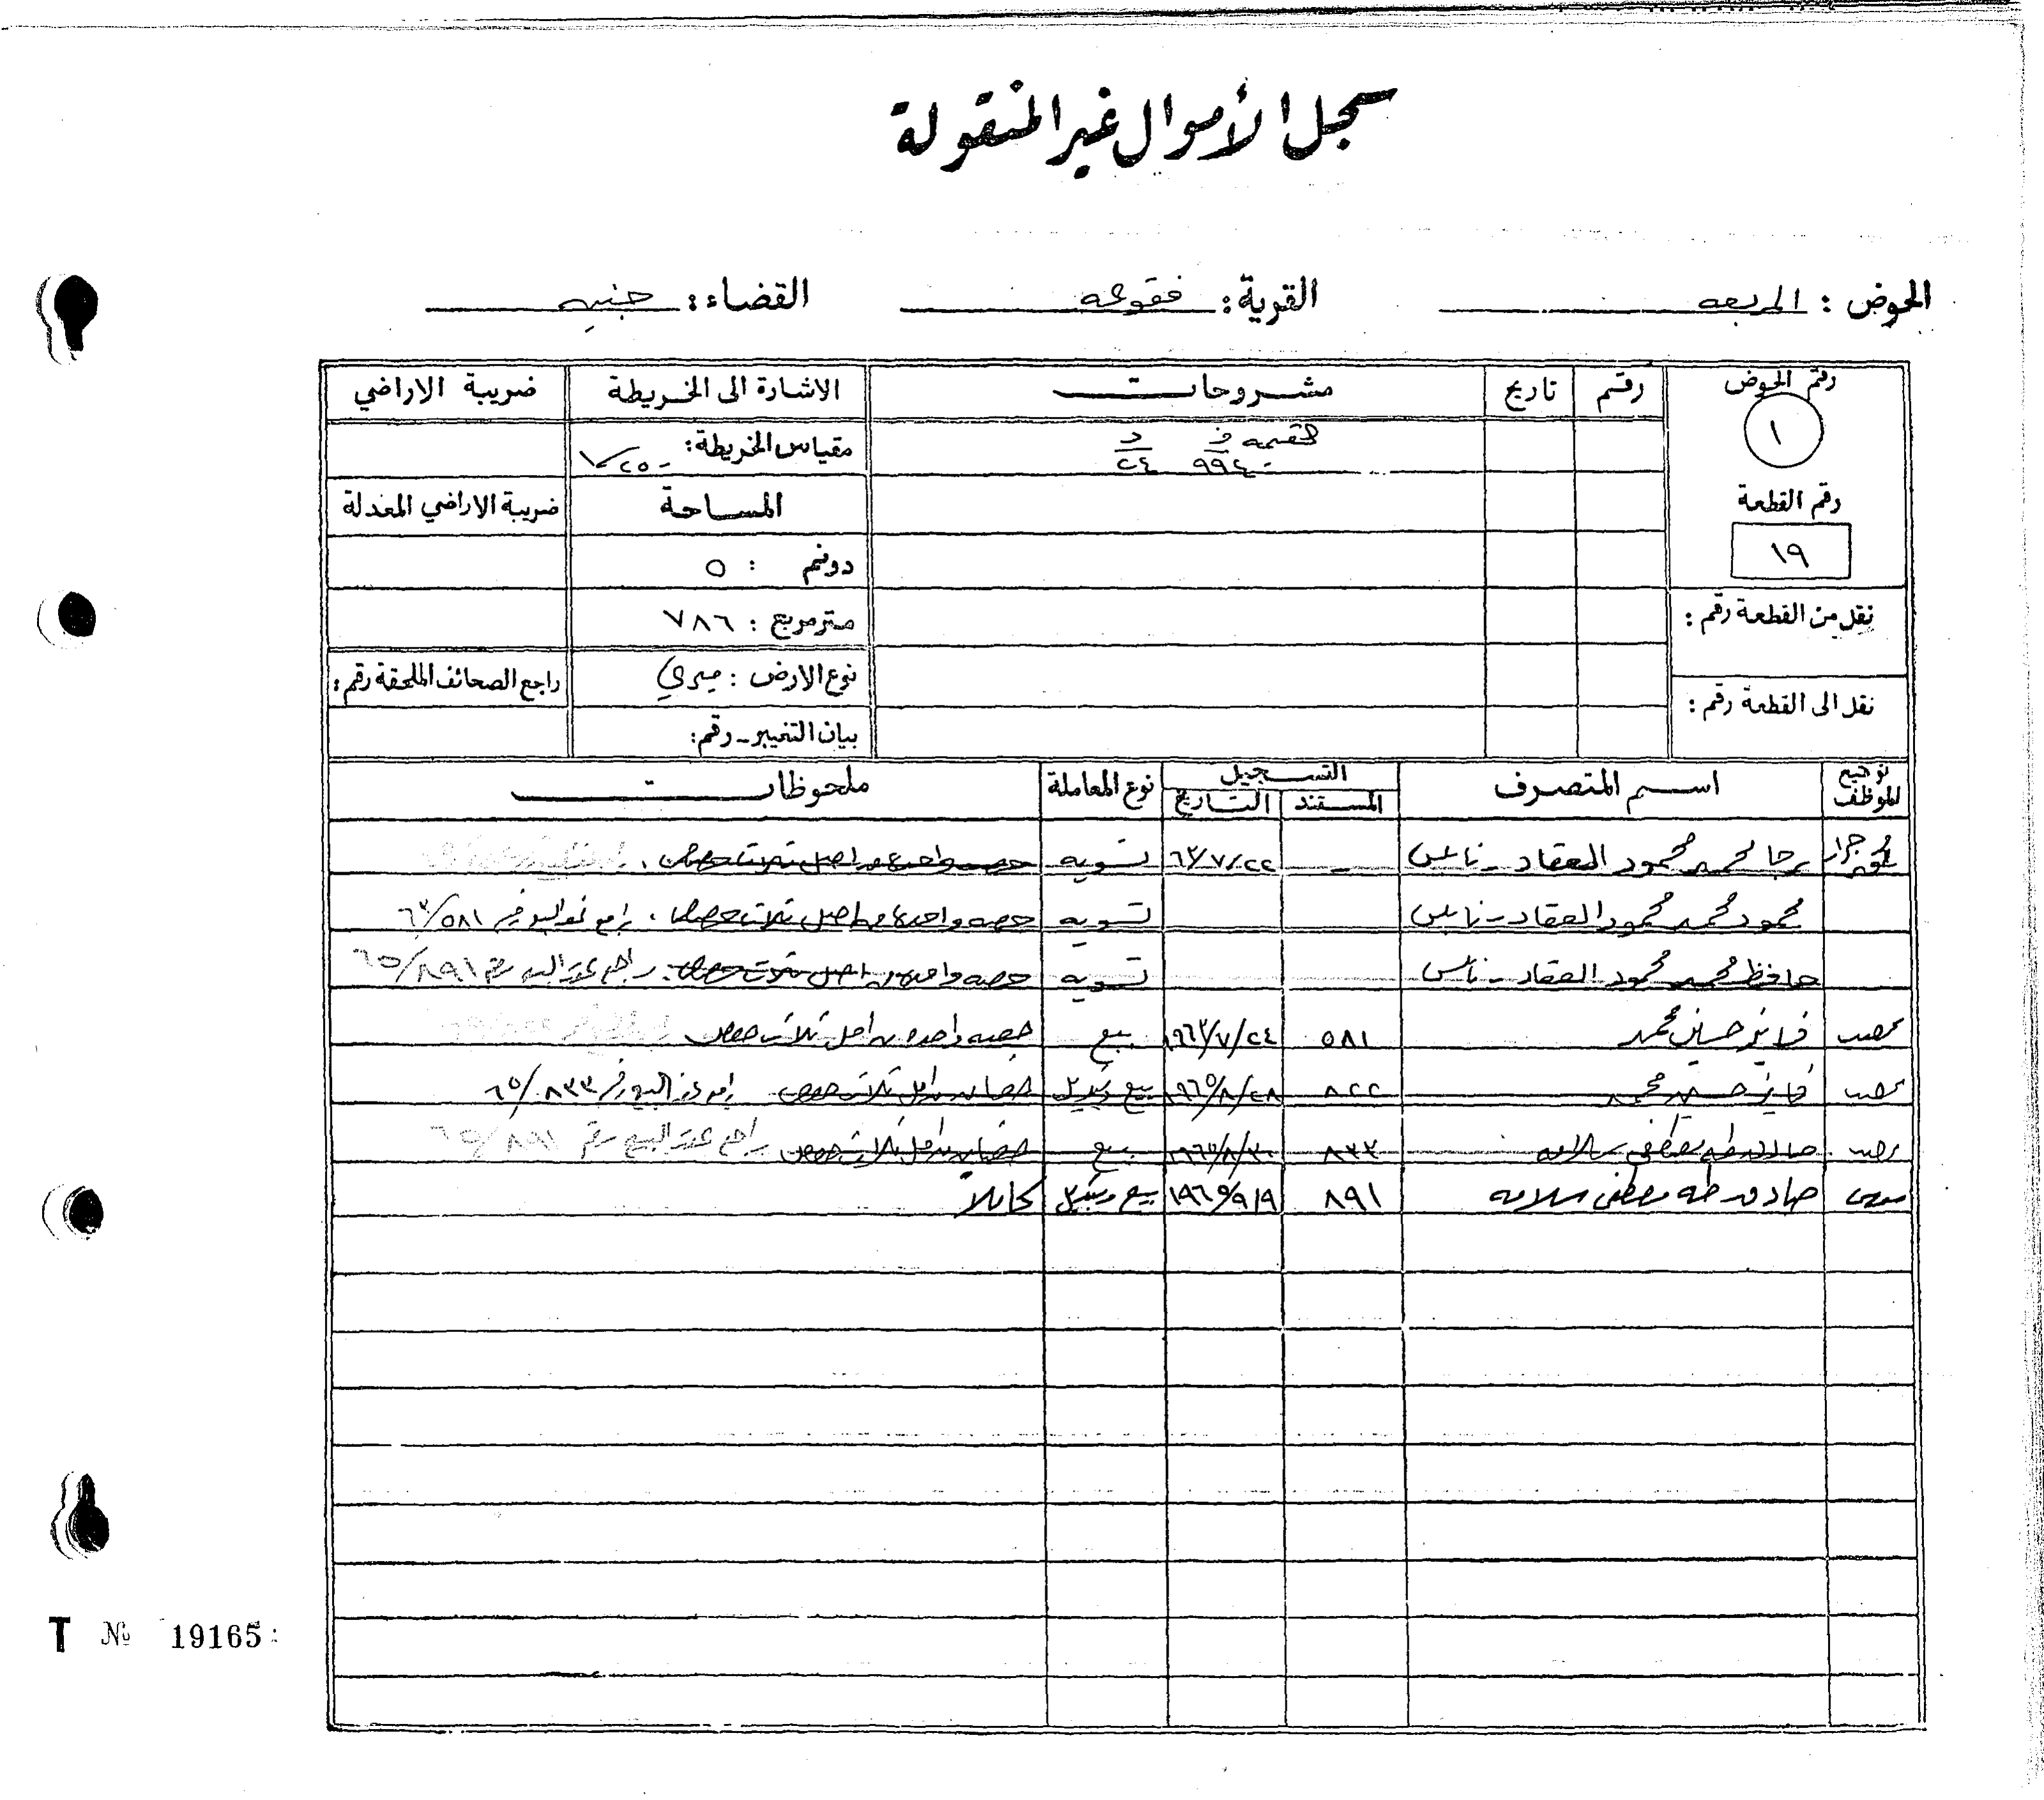 سجل الأموال غير المنقولة
الحوض : المربعه القرية : فقوعه القضاء : جنين
رقم الحوض رقم تاريخ مشروحات الاشارة الى الخريطة ضريبة الاراضي
١
القيمه ف د
٩٩٤٠ ٢٤
مقياس الخريطة : ١/٢٥٠٠
رقم القطعة
المساحة ضريبة الاراضي المعدلة
١٩
دونم : ٥
نقل من القطعة رقم :
متر مربع : ٧٨٦
نوع الارض : ميري راجع الصحائف الملحقة رقم :
نقل الى القطعة رقم :
بيان التغيير - رقم :
توقيع الموظف اسم المتصرف التسجيل نوع المعاملة ملحوظات
المستند التاريخ
رجا محمد محمود العقاد - نابلس — ٦٣/٧/٢٢ تسويه حصه واحدة من اصل ثلاث حصص .
محمود محمد محمود العقاد - نابلس تسويه حصه واحدة من اصل ثلاث حصص . راجع عقد البيع رقم ٦٣/٥٨١
حافظ محمد محمود العقاد - نابلس تسويه حصه واحدة من اصل ثلاث حصص . راجع عقد البيع رقم ٦٥/٨٩١
فايز حسين محمد ٥٨١ ٩٦٣/٧/٢٤ بيع حصه واحده من اصل ثلاث حصص
فايز حسين محمد ٨٢٢ ٩٦٥/٨/٢٨ بيع وتبديل حصتان من اصل ثلاث حصص راجع عقد البيع رقم ٦٥/٨٣٣
صادق طه مصطفى سلامه ٨٣٣ ١٩٦٥/٨/٣٠ بيع حصتان من اصل ثلاث حصص راجع عقد البيع رقم ٦٥/٨٩١
صادق طه مصطفى سلامه ٨٩١ ١٩٦٥/٩/١٩ بيع وتبديل كاملاً
T № 19165